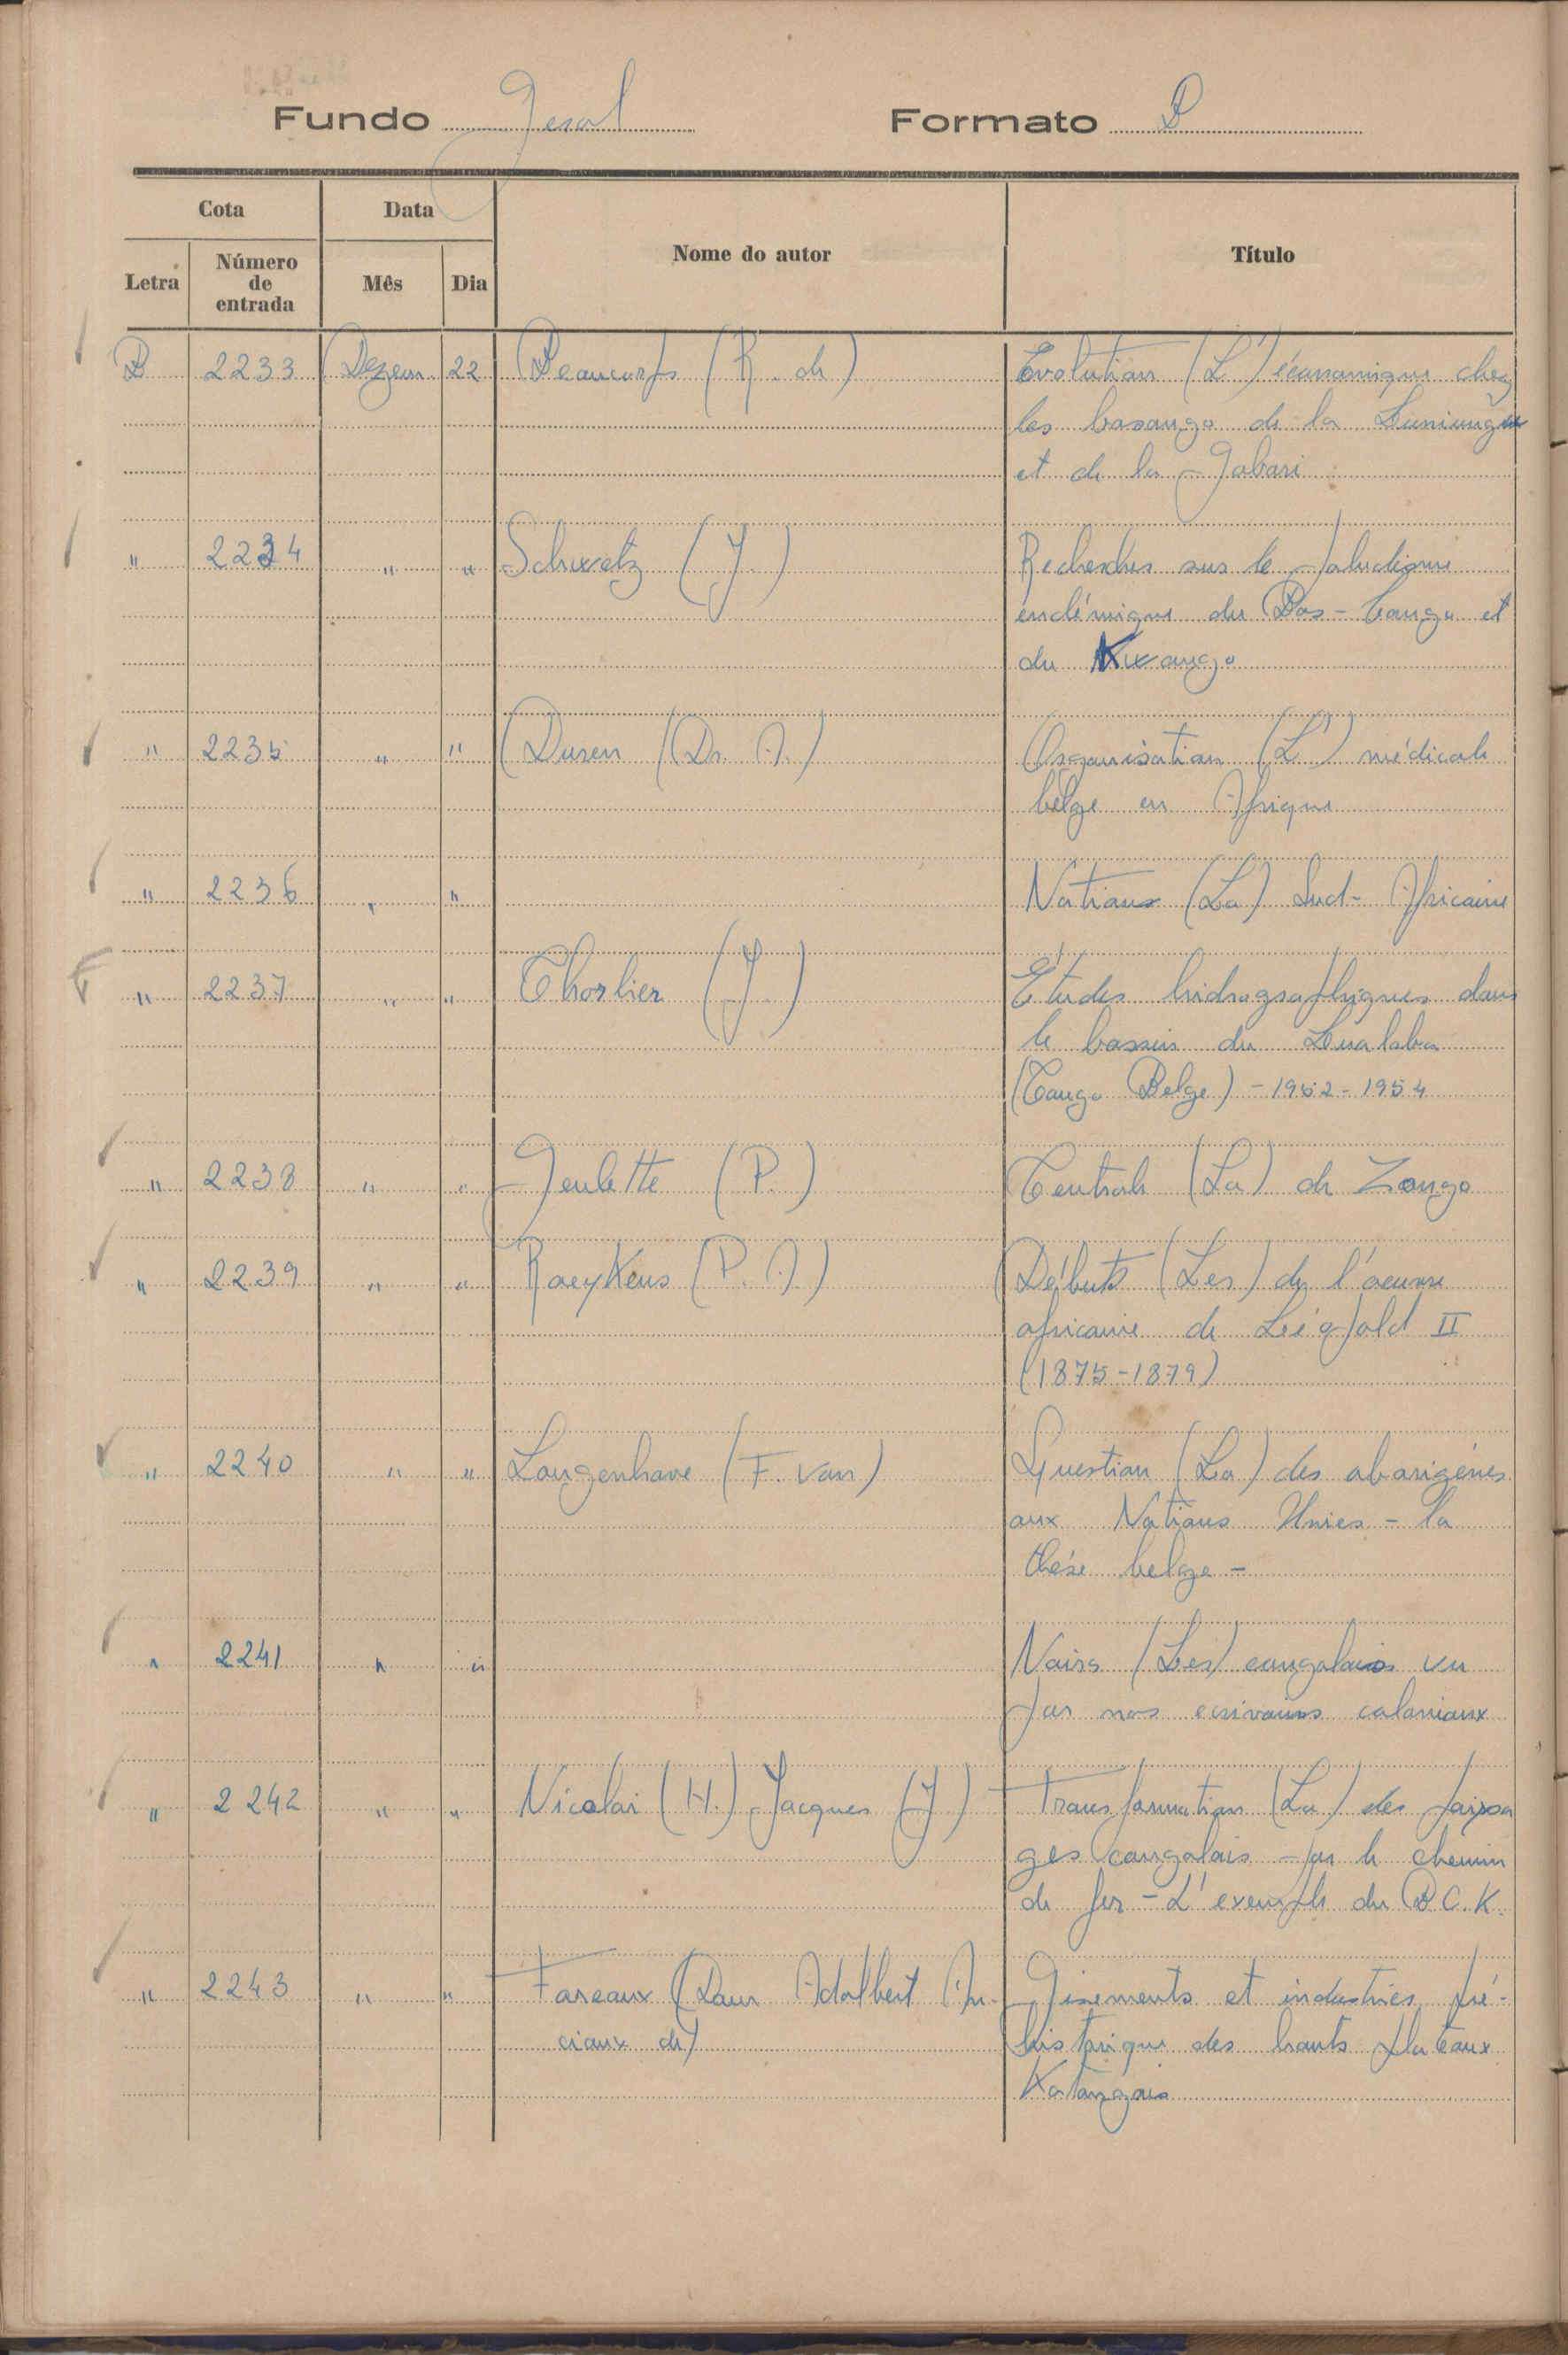 Fundo Geral Formato B
Cota Data Nome do autor Título
Letra Número de entrada Mês Dia
B 2233 Dezem. 22 Beaucorps (R. de) Evolution (L') économique chez
les basongo de la Luniungu
et de la Gobari
" 2234 " " Schwetz (J.) Recherches sur le paludisme
endémique du Bas-Congo et
du Kwango
" 2235 " " Duren (Dr. A.) Organisation (L') médicale
belge en Afrique
" 2236 " " Nations (La) Sud-Africaine
" 2237 " " Charlier (J.) Études hidrographiques dans
le bassin du Lualaba
(Congo Belge) - 1952-1954
" 2238 " " Geulette (P.) Centrale (La) de Zongo
" 2239 " " Roeykens (P. A.) Débuts (Les) de l'oeuvre
africaine de Léopold II
(1875-1879)
" 2240 " " Langenhove (F. van) Question (La) des aborigènes
aux Nations Unies - la
thèse belge -
" 2241 " " Noirs (Les) congolais vu
par nos écrivains coloniaux
" 2242 " " Nicolai (H.) Jacques (J.) Transformation (La) des paysa
ges congolais par le chemin
de fer - L'exemple du B.C.K.
" 2243 " " Fareaux (Dom Adalbert An- Gisements et industries pré-
ciaux de) historique des hauts plateaux
Katangais